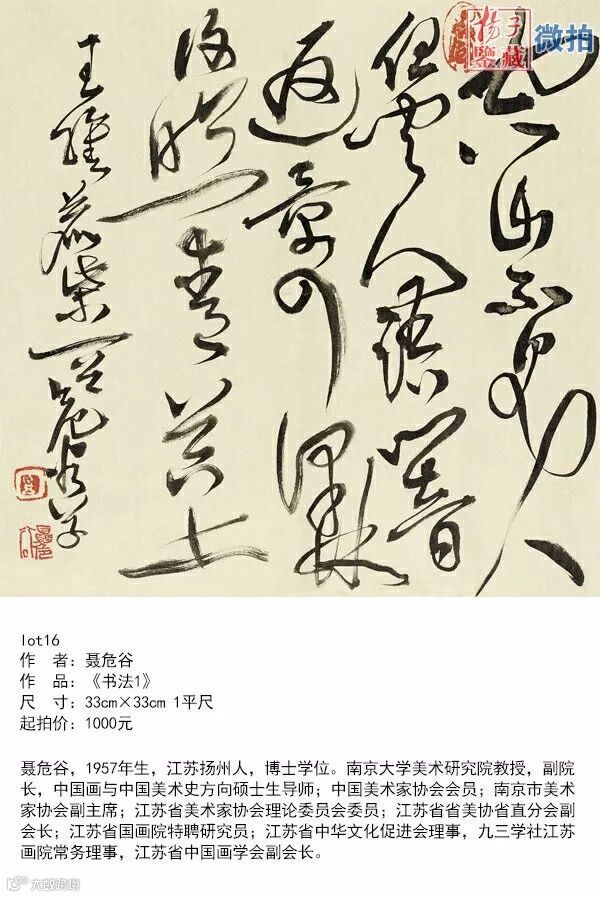 揚子
鑒藏
微拍
空山不見人
但聞人語響
返景入深林
復照青苔上
王維鹿柴
lot16
作 者：聂危谷
作 品：《书法1》
尺 寸：33cm×33cm 1平尺
起拍价：1000元
聂危谷，1957年生，江苏扬州人，博士学位。南京大学美术研究院教授，副院
长，中国画与中国美术史方向硕士生导师；中国美术家协会会员；南京市美术
家协会副主席；江苏省美术家协会理论委员会委员；江苏省省美协省直分会副
会长；江苏省国画院特聘研究员；江苏省中华文化促进会理事，九三学社江苏
画院常务理事，江苏省中国画学会副会长。